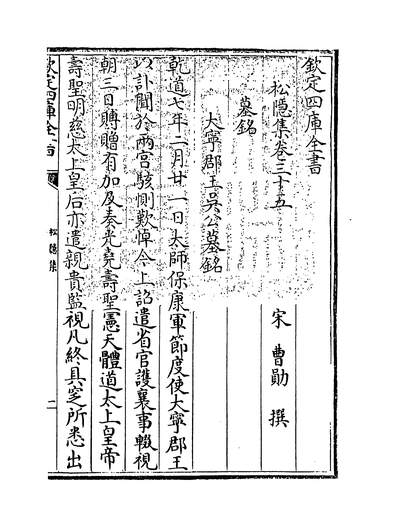 欽定四庫全書
松隱集卷三十五
宋 曹勛 撰
墓銘
大寧郡王吳公墓銘
乾道七年二月廿一日太師保康軍節度使大寧郡王
以訃聞於兩宮駭惻歎悼今上詔遣省官護襄事輟視
朝三日賻贈有加及奏光堯壽聖憲天體道太上皇帝
壽聖明慈太上皇后亦遣親貴監視凡終具窆所悉出
欽定四庫全書
松隱集